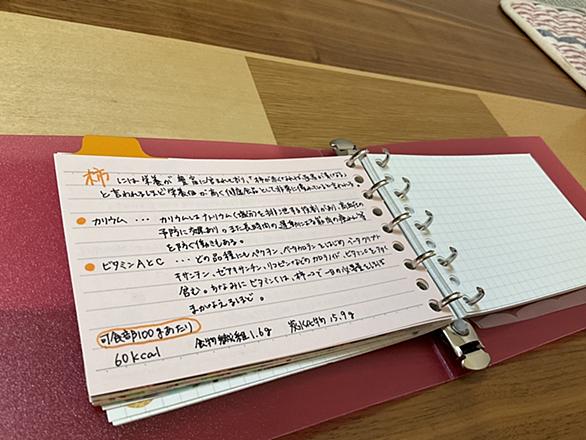 柿には栄養が豊富に含まれており、"柿が赤くなれば医者が青くなる"
と言われるほど栄養価が高く健康食品として非常に優れていると言われる
カリウム … カリウムはナトリウム(塩分)を排泄する役割があり、高血圧の
予防に効果あり。また長時間の運動による筋肉の痙攣など
を防ぐ働きもある。
ビタミンAとC … どの品種にもベータカロテンをはじめ ベータクリプト
キサンチン、ゼアキサンチン、リコピンなどのカロテノイド、ビタミンCを多く
含む。ちなみにビタミンCは、柿一つで一日の必要量をほぼ
まかなえるほど。
可食部100gあたり
60kcal 食物繊維1.6g 炭水化物15.9g